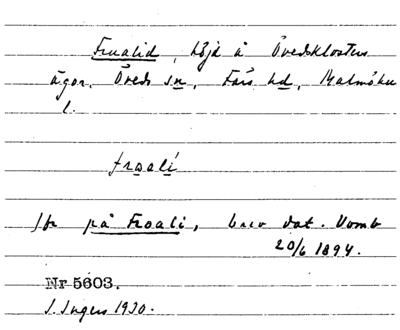 Frualid, höjd å Övedsklosters
ägor. Öveds sn, Färs hd, Malmöhus
l.
froali
på Froali, brev dat. Vomb
20/6 1894.
Nr 5603.
I. Ingers 1930.